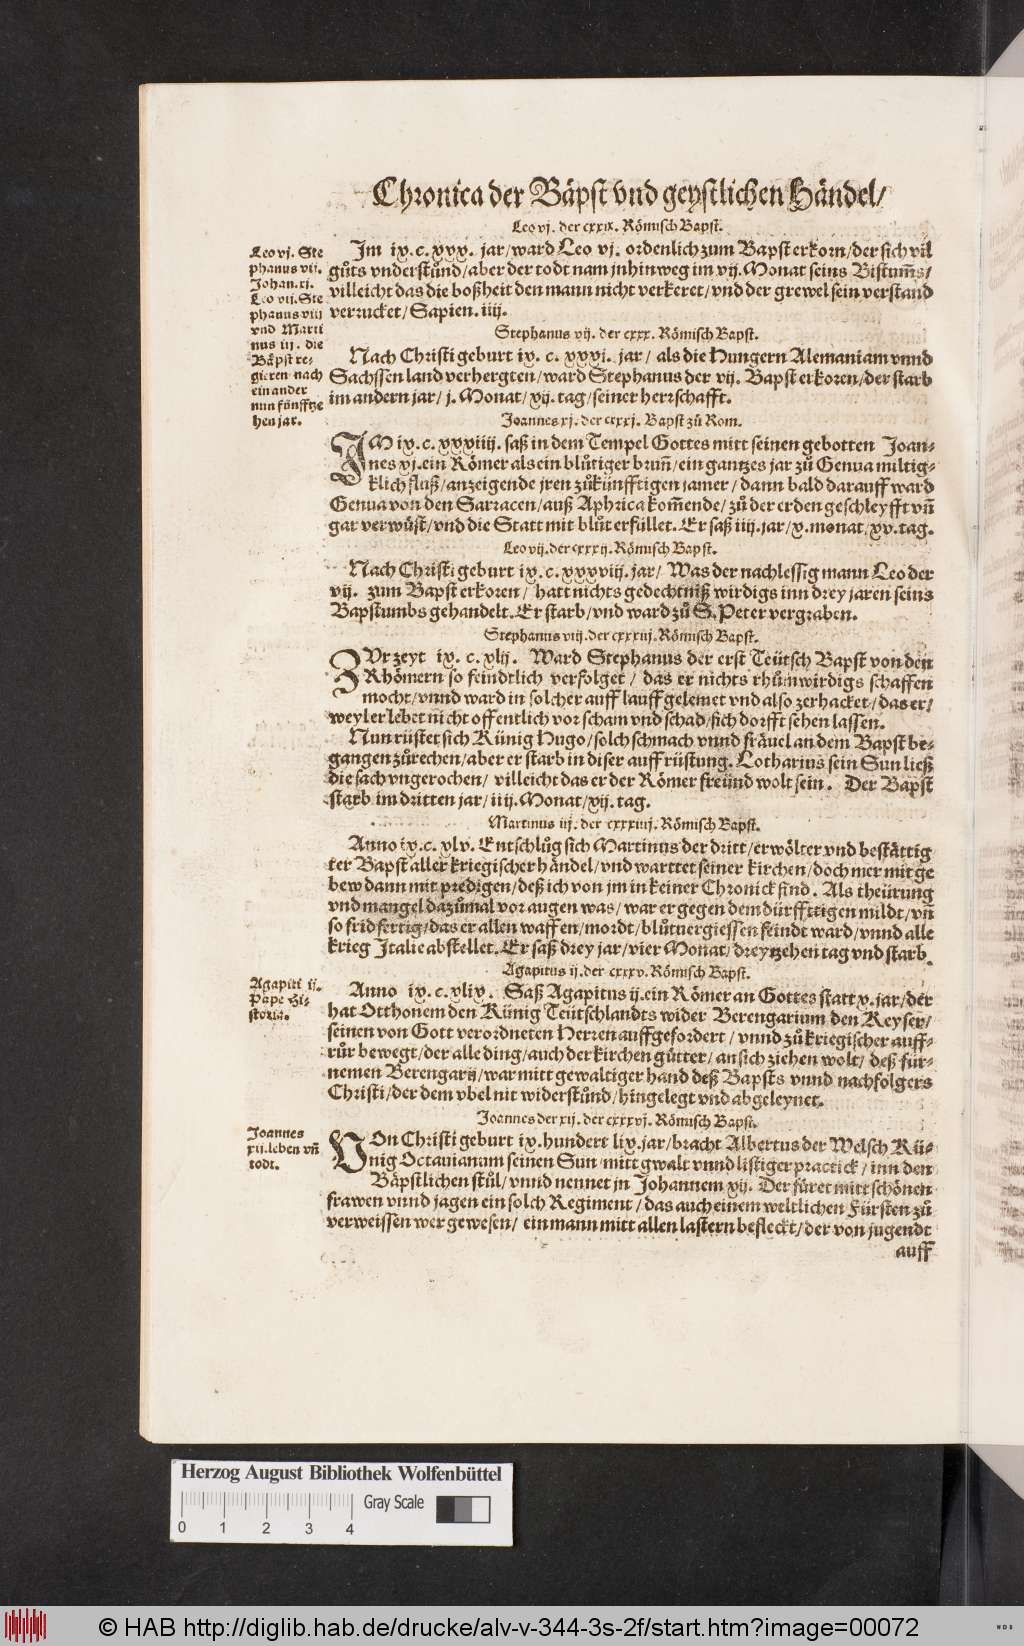 Chronica der Bäpst vnd geystlichen Händel/
Leo vj. der cxxix. Römisch Bapst.
Leo vj. Ste
phanus vij.
Johan. xj.
Leo vij. Ste
phanus viij
vnd Marti
nus iij. die
Bäpst re-
gieren nach
ein ander
nun fünfftze
hen jar.
Im ix. c. xxx. jar/ ward Leo vj. ordenlich zum Bapst erkorn/ der sich vil
gůts vnderstůnd/ aber der todt nam jn hinweg im vij. Monat seins Bistum̃s/
villeicht das die boßheit den mann nicht verkeret/ vnd der grewel sein verstand
verrucket/ Sapien. iiij.
Stephanus vij. der cxxx. Römisch Bapst.
Nach Christi geburt ix. c. xxxj. jar/ als die Hungern Alemaniam vnnd
Sachssen land verhergten/ ward Stephanus der vij. Bapst erkoren/ der starb
im andern jar/ j. Monat/ xij. tag/ seiner herrschafft.
Joannes xj. der cxxxj. Bapst zů Rom.
IM ix. c. xxxiiij. saß in dem Tempel Gottes mitt seinen gebotten Joan-
nes xj. ein Römer als ein blůtiger brun̄/ ein gantzes jar zů Genua miltig-
klich fluß/ anzeigende jren zůkünfftigen jamer/ dann bald darauff ward
Genua von den Sarracen/ auß Aphrica kom̄ende/ zů der erden geschleyfft vn̄
gar verwůst/ vnd die Statt mit blůt erfüllet. Er saß iiij. jar/ x. monat, xv. tag.
Leo vij. der cxxxij. Römisch Bapst.
Nach Christi geburt ix. c. xxxviij. jar/ Was der nachlessig mann Leo der
vij. zum Bapst erkoren/ hatt nichts gedechtniß wirdigs inn drey jaren seins
Bapstumbs gehandelt. Er starb/ vnd ward zů S. Peter vergraben.
Stephanus viij. der cxxxiij. Römisch Bapst.
ZVr zeyt ix. c. xlij. Ward Stephanus der erst Teütsch Bapst von den
Rhömern so feindtlich verfolget/ das er nichts rhůmwirdigs schaffen
mocht/ vnnd ward in solcher auff lauff gelemet vnd also zerhacket/ das er/
weyl er lebet nicht offentlich vor scham vnd schad/ sich dorfft sehen lassen.
Nun rüstet sich Künig Hugo/ solch schmach vnnd fräuel an dem Bapst be-
gangen zůrechen/ aber er starb in diser auffrüstung. Lotharius sein Sun ließ
die sach vngerochen/ villeicht das er der Römer freünd wolt sein. Der Bapst
starb im dritten jar/ iiij. Monat/ xij. tag.
Martinus iij. der cxxxiiij. Römisch Bapst.
Anno ix. c. xlv. Entschlůg sich Martinus der dritt/ erwölter vnd bestättig
ter Bapst aller kriegischer händel/ vnd warttet seiner kirchen/ doch mer mit ge
bew dann mit predigen/ deß ich von jm in keiner Chronick find. Als theürung
vnd mangel dazůmal vor augen was/ war er gegen dem dürfftigen mildt/ vn̄
so fridfertig/ das er allen waffen/ mordt/ blůtuergiessen feindt ward/ vnnd alle
krieg Italie abstellet. Er saß drey jar/ vier Monat/ dreytzehen tag vnd starb.
Agapitus ij. der cxxxv. Römisch Bapst.
Agapiti ij.
Pape Hi-
storia.
Anno ix. c. xlix. Saß Agapitus ij. ein Römer an Gottes statt x. jar/ der
hat Otthonem den Künig Teütschlandts wider Berengarium den Keyser/
seinen von Gott verordneten Herren auffgefordert/ vnnd zů kriegischer auff-
růr bewegt/ der alle ding/ auch der kirchen gůtter/ an sich ziehen wolt/ deß für-
nemen Berengarij/ war mitt gewaltiger hand deß Bapsts vnnd nachfolgers
Christi/ der dem vbel nit widerstůnd/ hingelegt vnd abgeleynet.
Joannes der xij. der cxxxvj. Römisch Bapst.
Joannes
xij. leben vn̄
todt.
VOn Christi geburt ix. hundert lix. jar/ bracht Albertus der Welsch Kü-
nig Octauianum seinen Sun mitt gwalt vnnd listiger practick/ inn den
Bäpstlichen stůl/ vnnd nennet jn Johannem xij. Der fůret mitt schönen
frawen vnnd jagen ein solch Regiment/ das auch einem weltlichen Fürsten zů
verweissen wer gewesen/ ein mann mitt allen lastern befleckt/ der von jugendt
auff
Herzog August Bibliothek Wolfenbüttel
Gray Scale
0 1 2 3 4
© HAB http://diglib.hab.de/drucke/alv-v-344-3s-2f/start.htm?image=00072